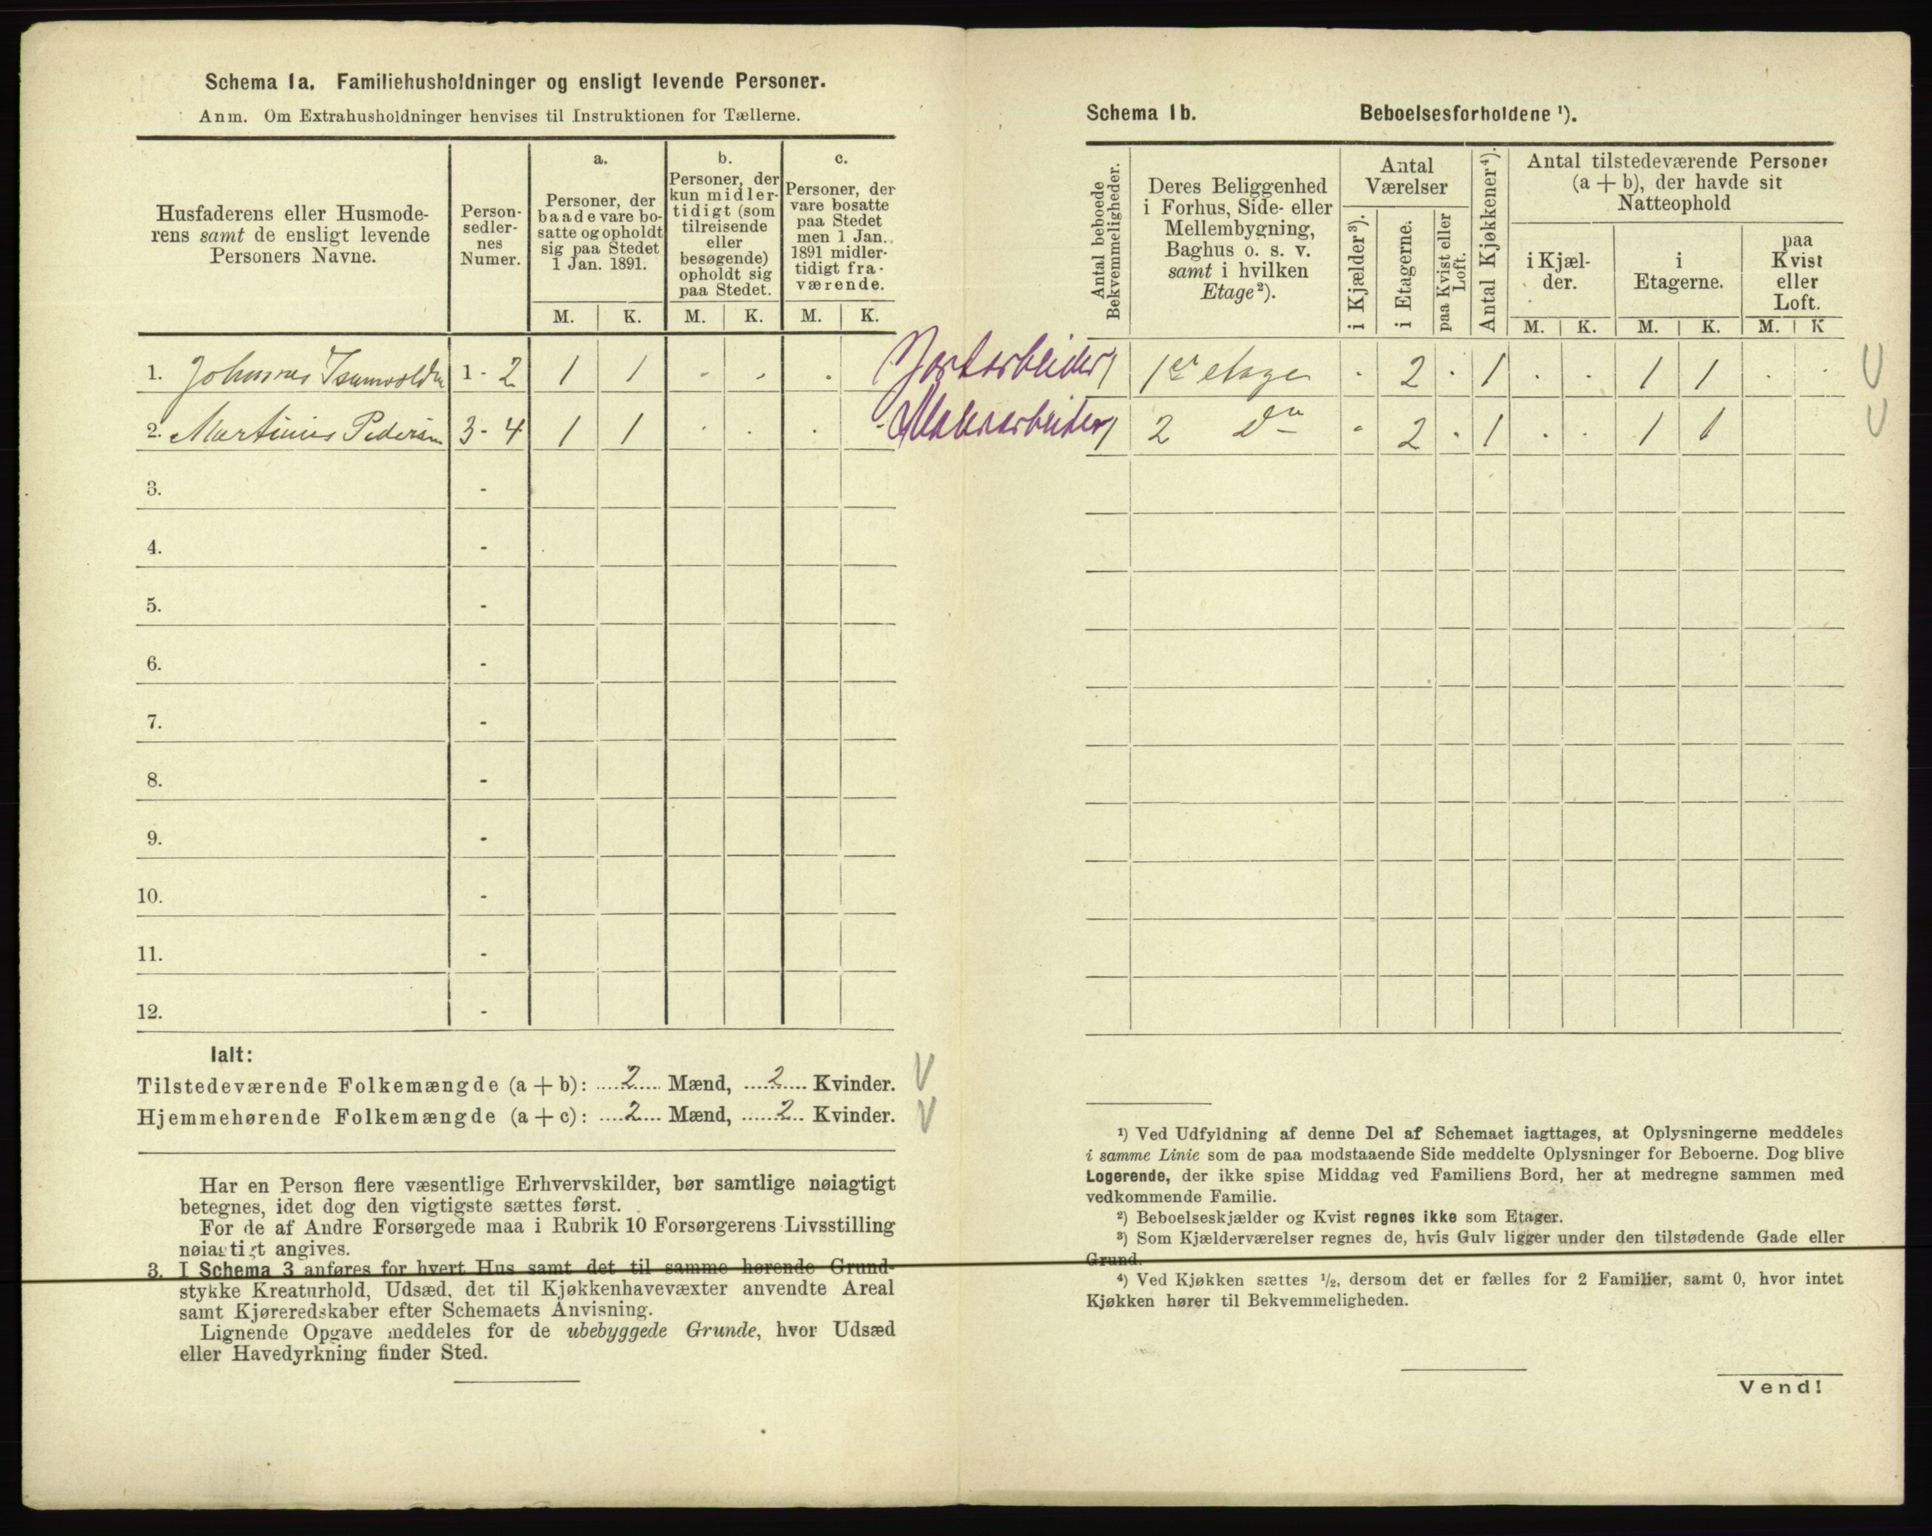 Schema 1a. Familiehusholdninger og ensligt levende Personer.
Anm. Om Extrahusholdninger henvises til Instruktionen for Tællerne.
Husfaderens eller Husmode-
rens samt de ensligt levende
Personers Navne.
Person-
sedler-
nes
Numer.
a.
Personer, der
baade vare bo-
satte og opholdt
sig paa Stedet
1 Jan. 1891.
b.
Personer, der
kun midler-
tidigt (som
tilreisende
eller
besøgende)
opholdt sig
paa Stedet.
c.
Personer, der
vare bosatte
paa Stedet
men 1 Jan.
1891 midler-
tidigt fra-
værende.
M. K. M. K. M. K.
1. Johannes 1 - 2 1 1 . . .
2. Martinius Pedersen 3 - 4 1 1 . . . .
3. -
4. -
5. -
6. -
7. -
8. -
9. -
10. -
11. -
12. -
Ialt:
Tilstedeværende Folkemængde (a + b): 2 Mænd, 2 Kvinder.
Hjemmehørende Folkemængde (a + c): 2 Mænd, 2 Kvinder.
Har en Person flere væsentlige Erhvervskilder, bør samtlige nøiagtigt
betegnes, idet dog den vigtigste sættes først.
For de af Andre Forsørgede maa i Rubrik 10 Forsørgerens Livsstilling
nøiagtigt angives.
3. I Schema 3 anføres for hvert Hus samt det til samme hørende Grund-
stykke Kreaturhold, Udsæd, det til Kjøkkenhavevæxter anvendte Areal
samt Kjøreredskaber efter Schemaets Anvisning.
Lignende Opgave meddeles for de ubebyggede Grunde, hvor Udsæd
eller Havedyrkning finder Sted.
Schema 1b. Beboelsesforholdene ¹).
Antal beboede
Bekvemmeligheder.
Deres Beliggenhed
i Forhus, Side- eller
Mellembygning,
Baghus o. s. v.
samt i hvilken
Etage²).
Antal
Værelser
i Kjælder³).
i Etagerne.
paa Kvist eller
Loft.
Antal Kjøkkener⁴).
Antal tilstedeværende Personer
(a + b), der havde sit
Natteophold
i Kjæl-
der.
i
Etagerne.
paa
Kvist
eller
Loft.
M. K. M. K. M. K
1 1ste etage . 2 . 1 . . 1 1 . .
1 2 do . 2 . 1 . . 1 1
¹) Ved Udfyldning af denne Del af Schemaet iagttages, at Oplysningerne meddeles
i samme Linie som de paa modstaaende Side meddelte Oplysninger for Beboerne. Dog blive
Logerende, der ikke spise Middag ved Familiens Bord, her at medregne sammen med
vedkommende Familie.
²) Beboelseskjælder og Kvist regnes ikke som Etager.
³) Som Kjælderværelser regnes de, hvis Gulv ligger under den tilstødende Gade eller
Grund.
⁴) Ved Kjøkken sættes ½, dersom det er fælles for 2 Familier, samt 0, hvor intet
Kjøkken hører til Bekvemmeligheden.
Vend!